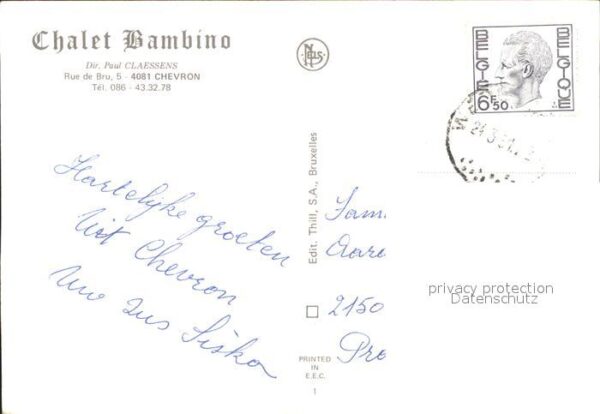 Chalet Bambino
Dir. Paul CLAESSENS
Rue de Bru, 5 - 4081 CHEVRON
Tél. 086 - 43.32.78
NELS
BELGIE
BELGIQUE
6F50
24 3
Hartelijke groeten
Uit Chevron
Uw Zus Siska
Edit. Thill, S.A., Bruxelles
Fam.
2150
privacy protection
Datenschutz
PRINTED
IN
E.E.C.
1